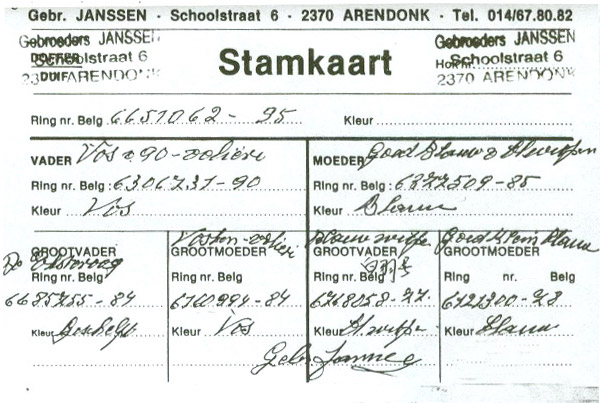 Gebr. JANSSEN · Schoolstraat 6 · 2370 ARENDONK · Tel. 014/67.80.82
Gebroeders JANSSEN
Schoolstraat 6
2370 ARENDONK
DOFFER
DUIF
Stamkaart
Gebroeders JANSSEN
Schoolstraat 6
2370 ARENDONK
Hoknr.
Ring nr. Belg 6651062-95 Kleur
VADER Vos v 90
Ring nr. Belg: 6306731-90
Kleur Vos
MOEDER Goed Blauw
Ring nr. Belg: 509-85
Kleur Blauw
GROOTVADER
Ring nr. Belg
6685755-84
Kleur
GROOTMOEDER
Ring nr. Belg
6760994-84
Kleur Vos
Blauw
GROOTVADER
Ring nr. Belg
6768058-77
Kleur
Goed Blauw
GROOTMOEDER
Ring nr. Belg
6721300-78
Kleur Blauw
Gebr Janssen